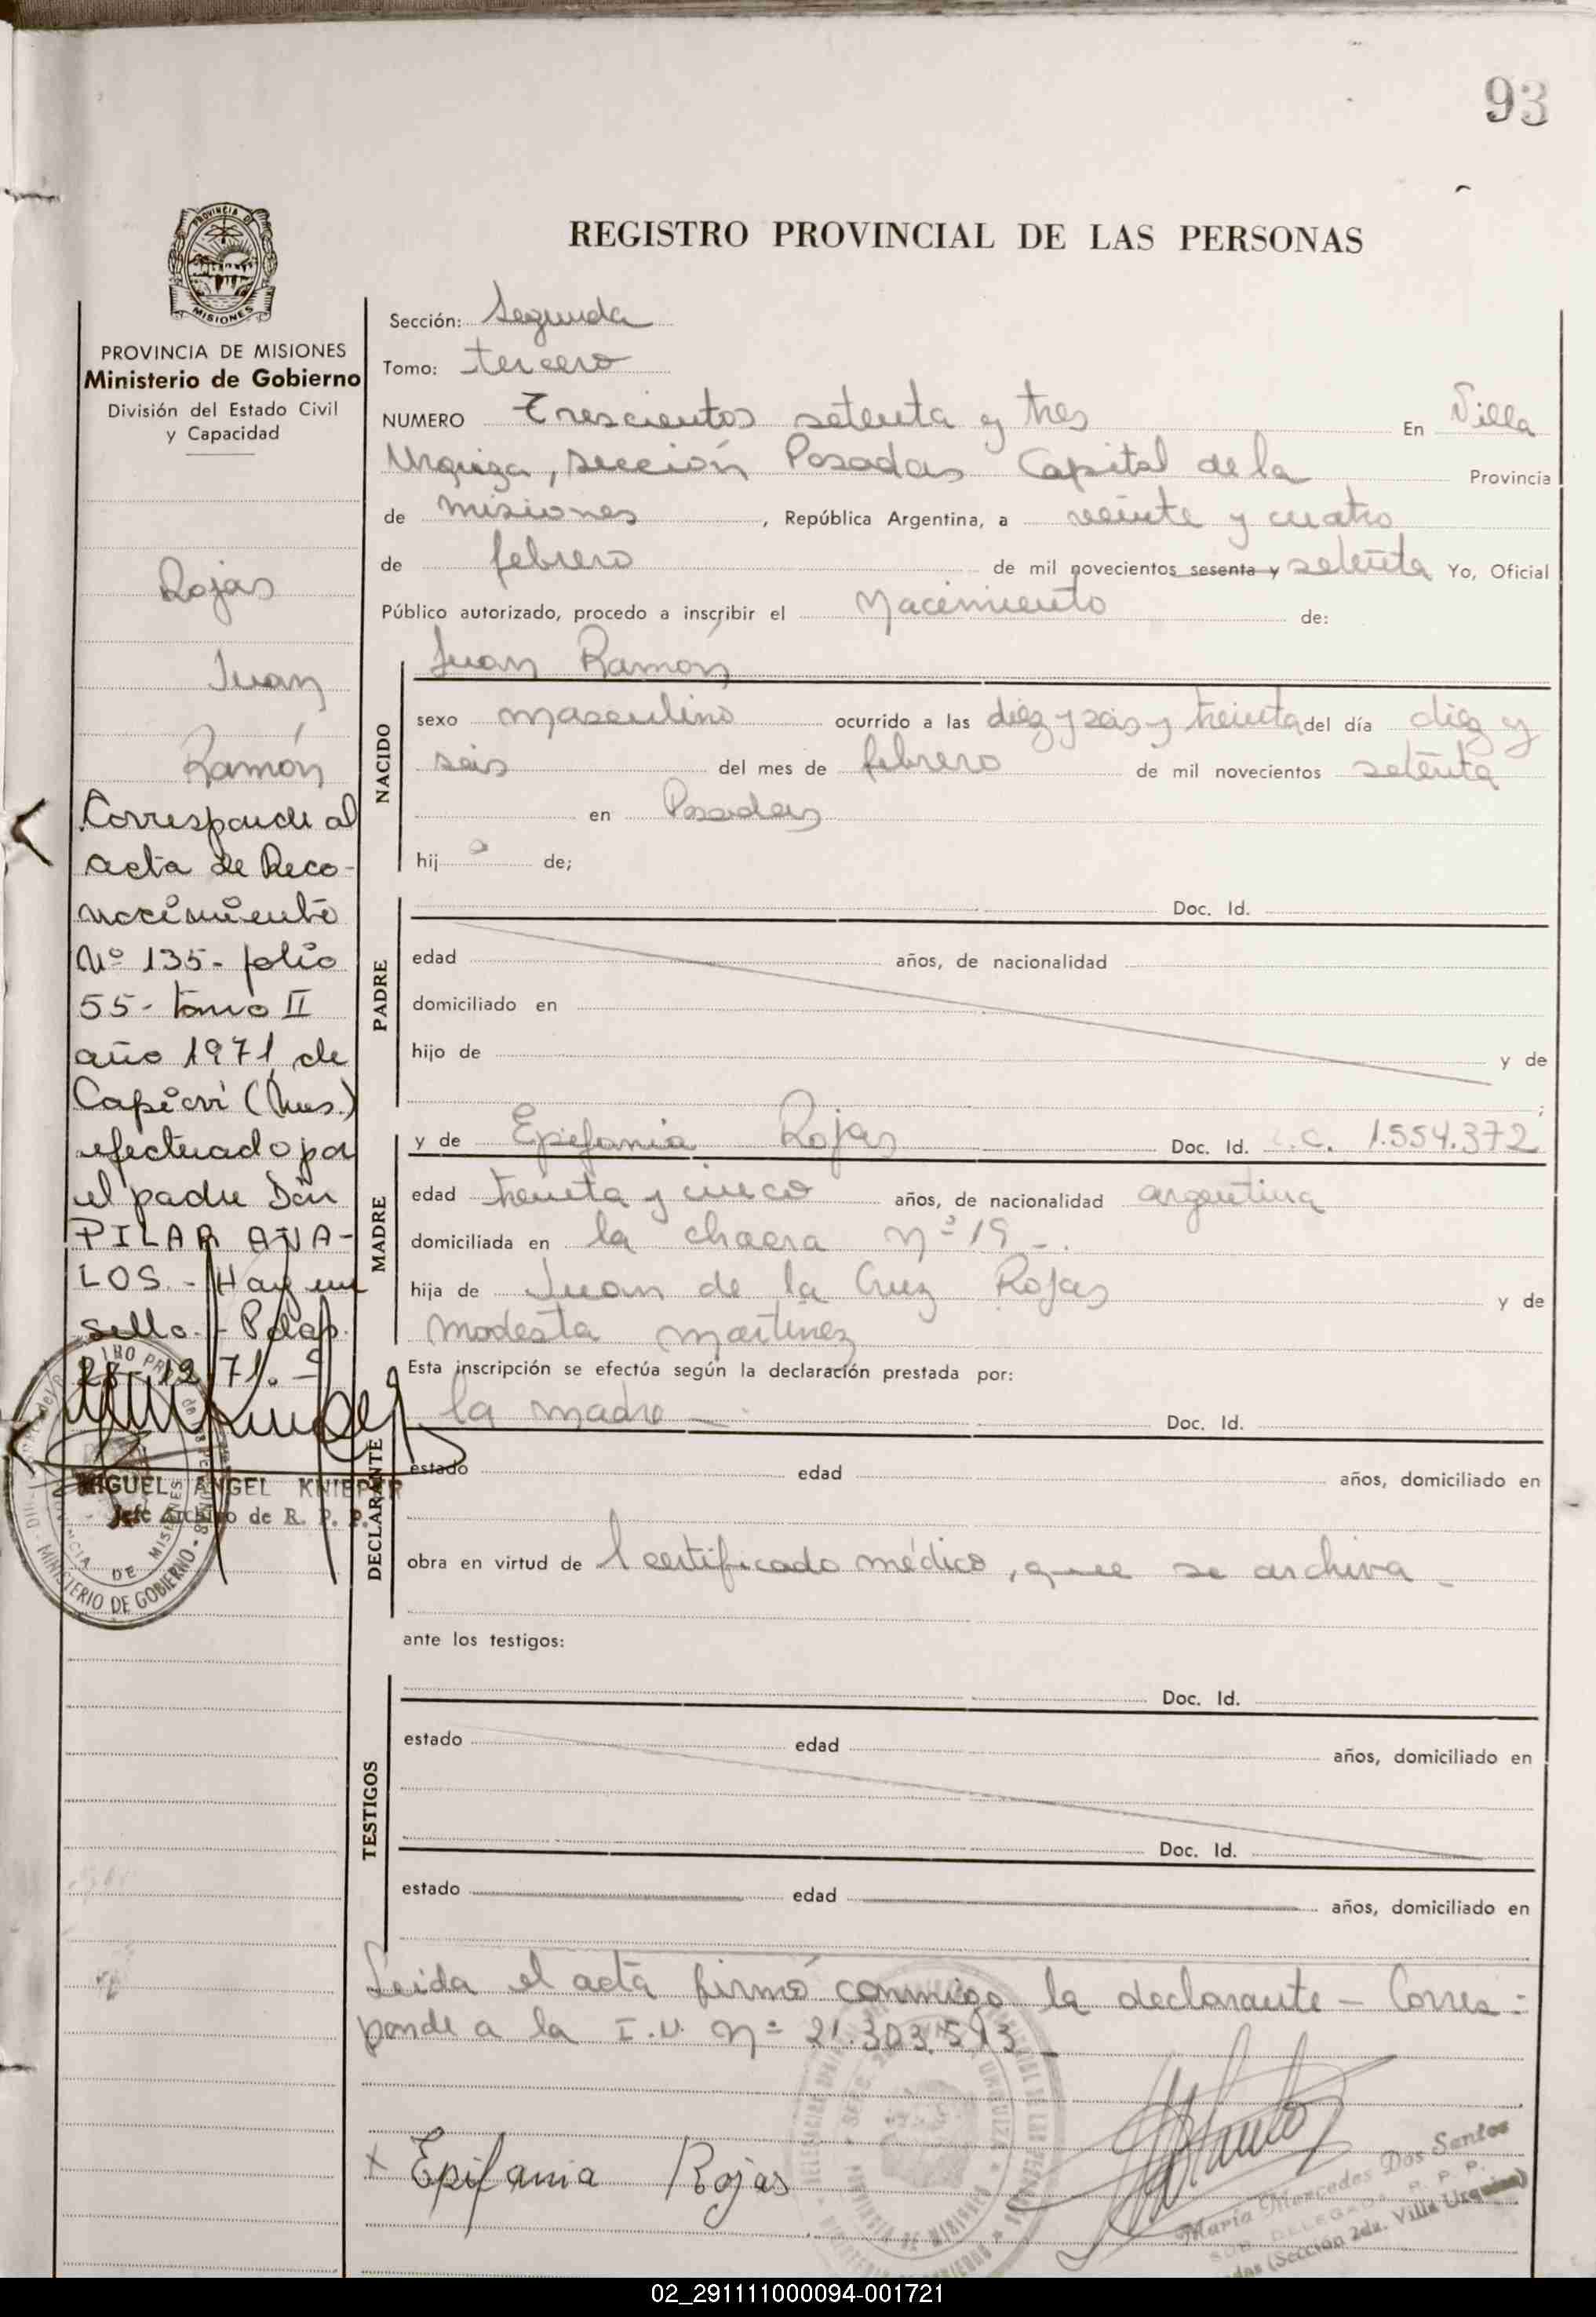 93
PROVINCIA DE
MISIONES
REGISTRO PROVINCIAL DE LAS PERSONAS
PROVINCIA DE MISIONES
Ministerio de Gobierno
División del Estado Civil
y Capacidad
Rojas
Juan
Ramón
Corresponde al
acta de Reco-
nocimiento
Nº 135- folio
55- tomo II
año 1971, de
Capioví (Mnes.)
efectuado por
el padre Don
PILAR AVA-
LOS.- Hay un
sello.- Pdas.
28-12-71.-
MIGUEL ANGEL KNIEPER
Jefe Archivo de R. P. P.
MINISTERIO DE GOBIERNO
Sección: Segunda
Tomo: tercero
NUMERO Trescientos setenta y tres En Villa
Urquiza, sección Posadas Capital de la Provincia
de misiones, República Argentina, a veinte y cuatro
de febrero de mil novecientos sesenta y setenta Yo, Oficial
Público autorizado, procedo a inscribir el Nacimiento de:
NACIDO
Juan Ramón
sexo masculino ocurrido a las diez y seis y treinta del día diez y
seis del mes de febrero de mil novecientos setenta
en Posadas
hij o de;
PADRE
Doc. Id.
edad años, de nacionalidad
domiciliado en
hijo de y de
;
MADRE
y de Epifania Rojas Doc. Id. L.C. 1.554.372
edad treinta y cinco años, de nacionalidad argentina
domiciliada en la chacra nº 19-.
hija de Juan de la Cruz Rojas y de
modesta martinez
Esta inscripción se efectúa según la declaración prestada por:
DECLARANTE
la madre-. Doc. Id.
estado edad años, domiciliado en
obra en virtud de l certificado médico, que se archiva-
ante los testigos:
TESTIGOS
Doc. Id.
estado edad años, domiciliado en
Doc. Id.
estado edad años, domiciliado en
Leida el acta firmó conmigo la declarante - Corres=
ponde a la I.U. nº 21.303.513-
x Epifania Rojas
María Mercedes Dos Santos
SUB DELEGADA R. P. P.
(Sección 2da. Villa Urquiza)
02_291111000094-001721